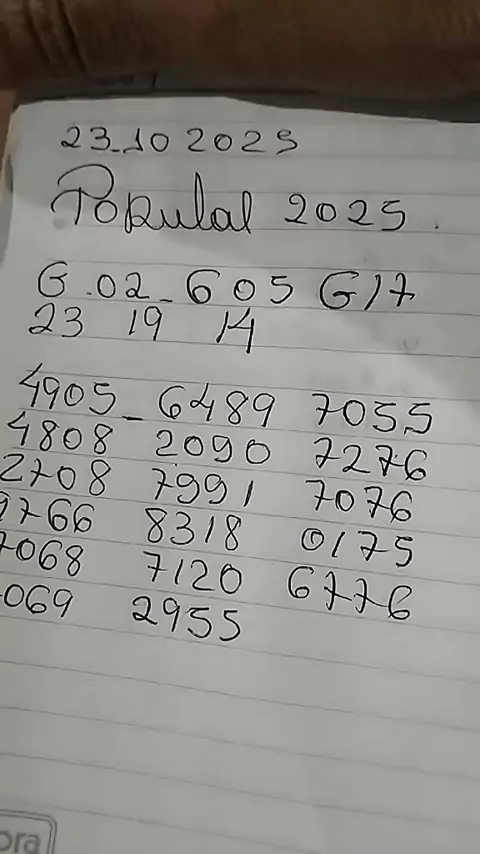 23.10 2025
Popular 2025.
G.02_605 G17
23 19 14
4905_6489 7055
4808 2090 7276
2708 7991 7076
9766 8318 0175
7068 7120 6776
069 2955
ora